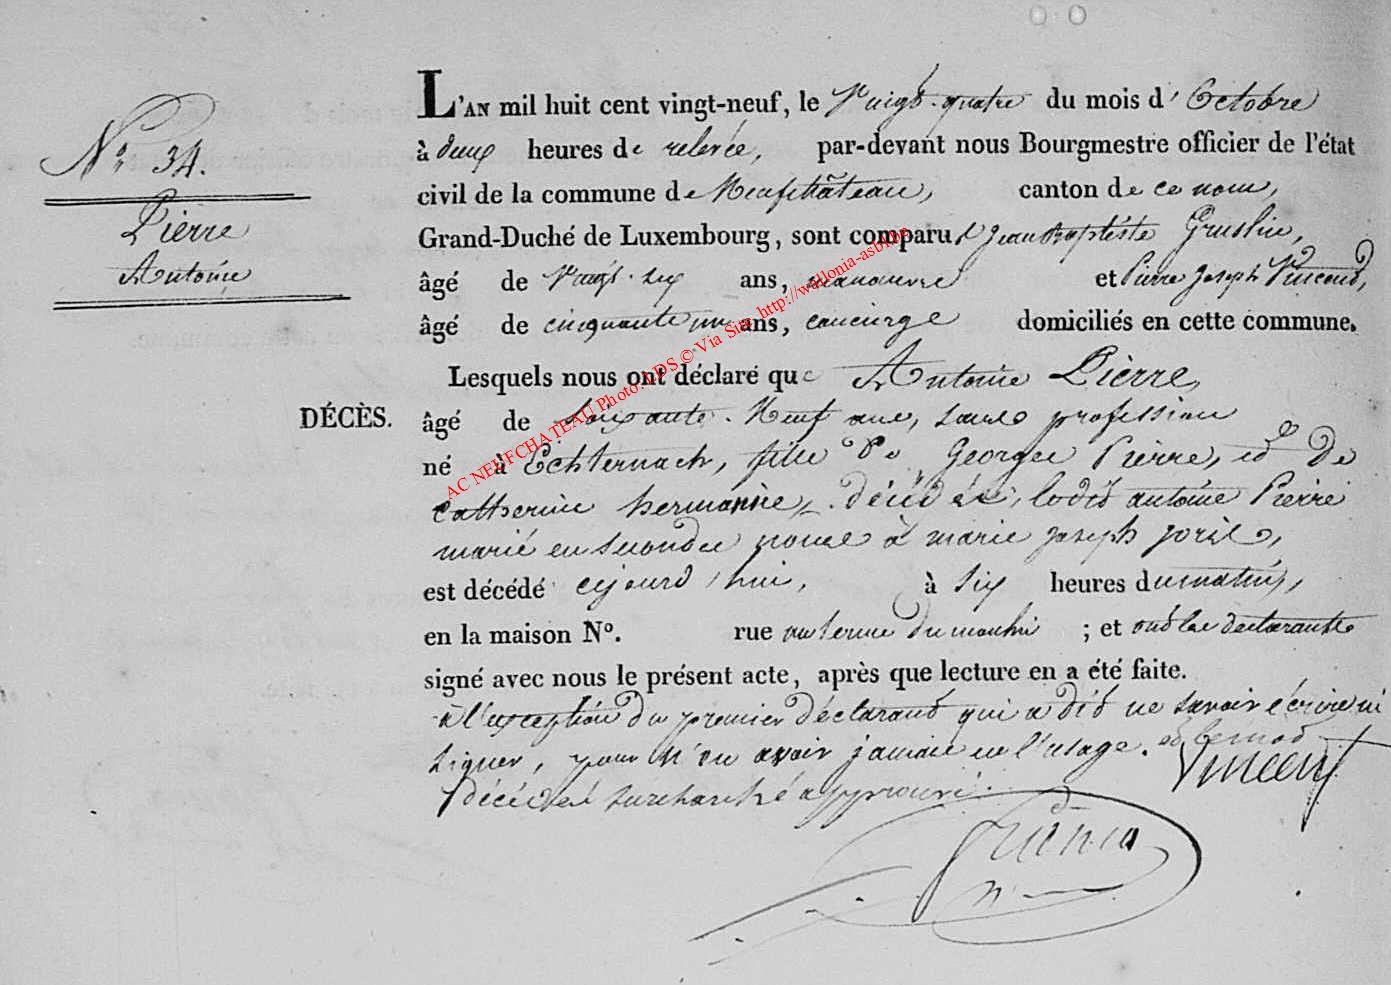 N° 34.
Pierre
Antoine
L'AN mil huit cent vingt-neuf, le Vingt-quatre du mois d'Octobre
à deux heures de relevée, par-devant nous Bourgmestre officier de l'état
civil de la commune de Neufchâteau, canton de ce nom,
Grand-Duché de Luxembourg, sont comparus Jean Baptiste Gruslin,
âgé de Vingt-six ans, manoeuvre et Pierre Joseph Vincent,
âgé de cinquante un ans, concierge domiciliés en cette commune.
Lesquels nous ont déclaré que Antoine Pierre,
DÉCÈS. âgé de soixante-Neuf ans, sans profession
né à Echternach, fils de George Pierre, et de
Catherine hermanne, décédés, ledit antoine Pierre
marié en secondes noces à marie joseph
est décédé cejourd'hui, à six heures du matin,
en la maison N°. rue ; et ont les déclarants
signé avec nous le présent acte, après que lecture en a été faite.
à l'exception du premier déclarant qui a dit ne savoir écrire ni
signer, pour n'en avoir jamais eu l'usage. et le mot
décédés surchargé approuvé.
Vincent
AC NEUFCHATEAU Photo: LDS © Via Site http://wallonia-asbl.be